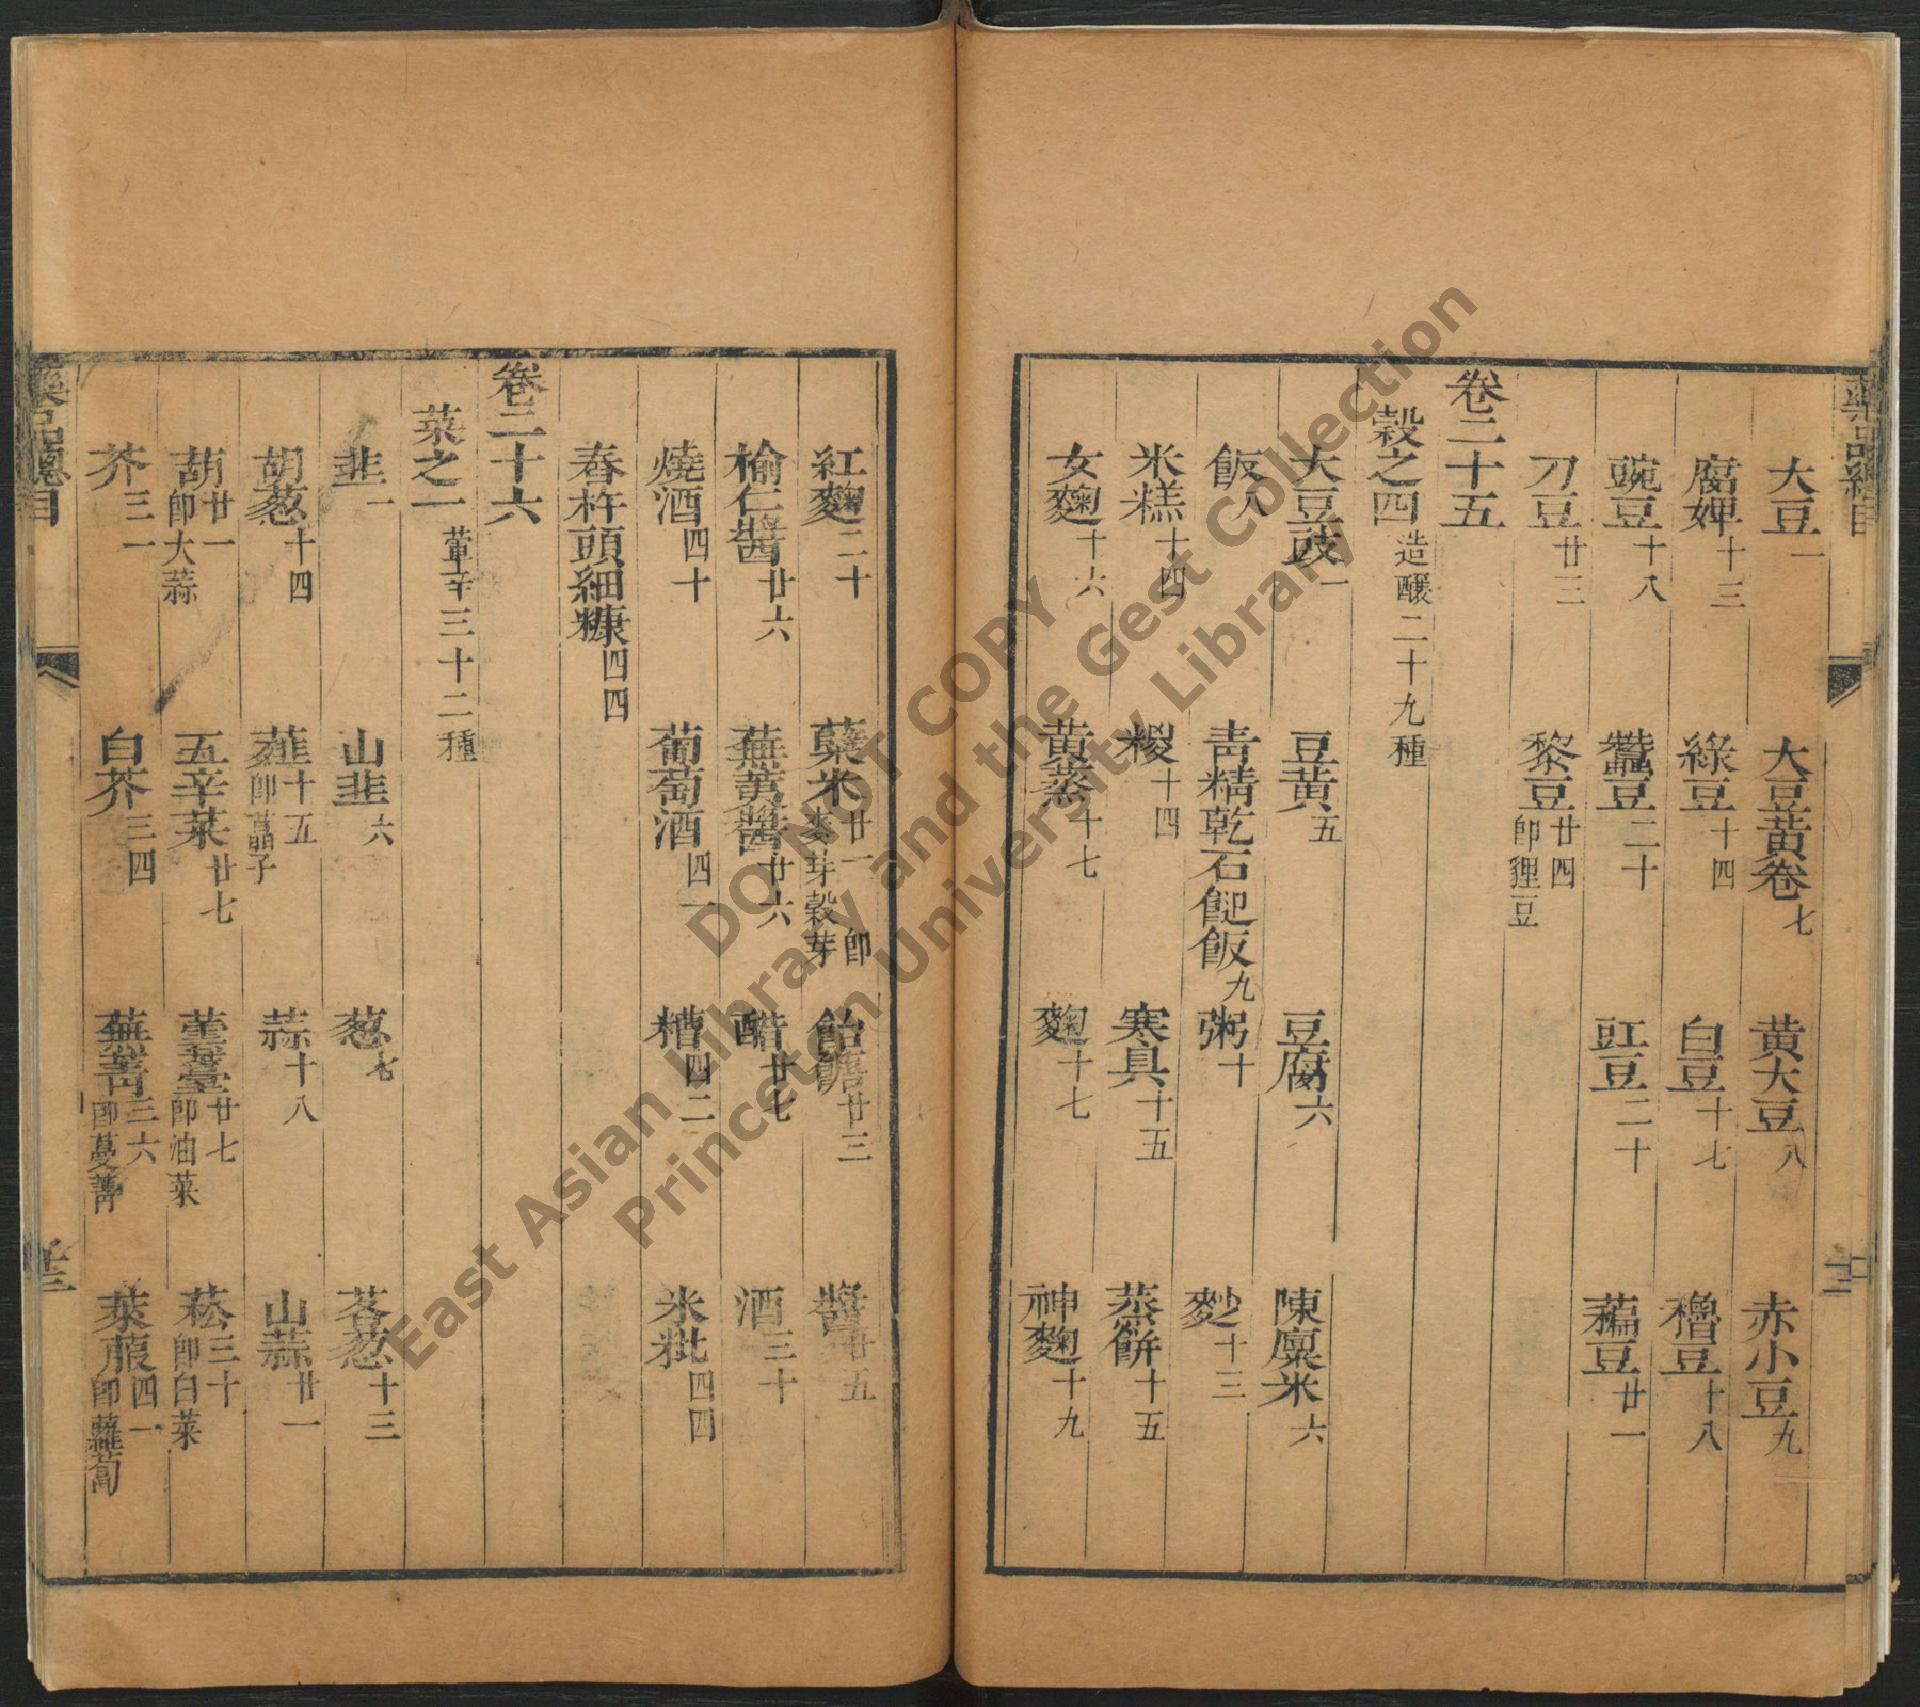 大豆一 大豆黄卷七 黄大豆八 赤小豆九
腐婢十三 綠豆十四 白豆十七 穭豆十八
豌豆十八 蠶豆二十 豇豆二十 藊豆廿一
刀豆廿三 黎豆廿四即貍豆
卷二十五
穀之四造釀二十九種
大豆豉一 豆黄五 豆腐六 陳廩米六
飯八 青精乾石䭀飯九 粥十 麨十三
米糕十四 糉十四 寒具十五 蒸餅十五
女麴十六 黄蒸十七 麴十七 神麴十九
紅麴二十 蘖米廿一即麥芽穀芽 飴餹廿三 醬廿五
榆仁醬廿六 蕪荑醬廿六 醋廿七 酒三十
燒酒四十 葡萄酒四一 糟四二 米粃四四
舂杵頭細糠四四
卷二十六
菜之一葷辛三十二種
韭一 山韭六 葱七 茖葱十三
胡葱十四 薤十五即藠子 蒜十八 山蒜廿一
葫廿一即大蒜 五辛菜廿七 蕓薹廿七即油菜 菘三十即白菜
芥三一 白芥三四 蕪菁三六即蔓菁 萊菔四一即蘿蔔
藥品總目
DO NOT COPY
East Asian Library and the Gest Collection
Princeton University Library